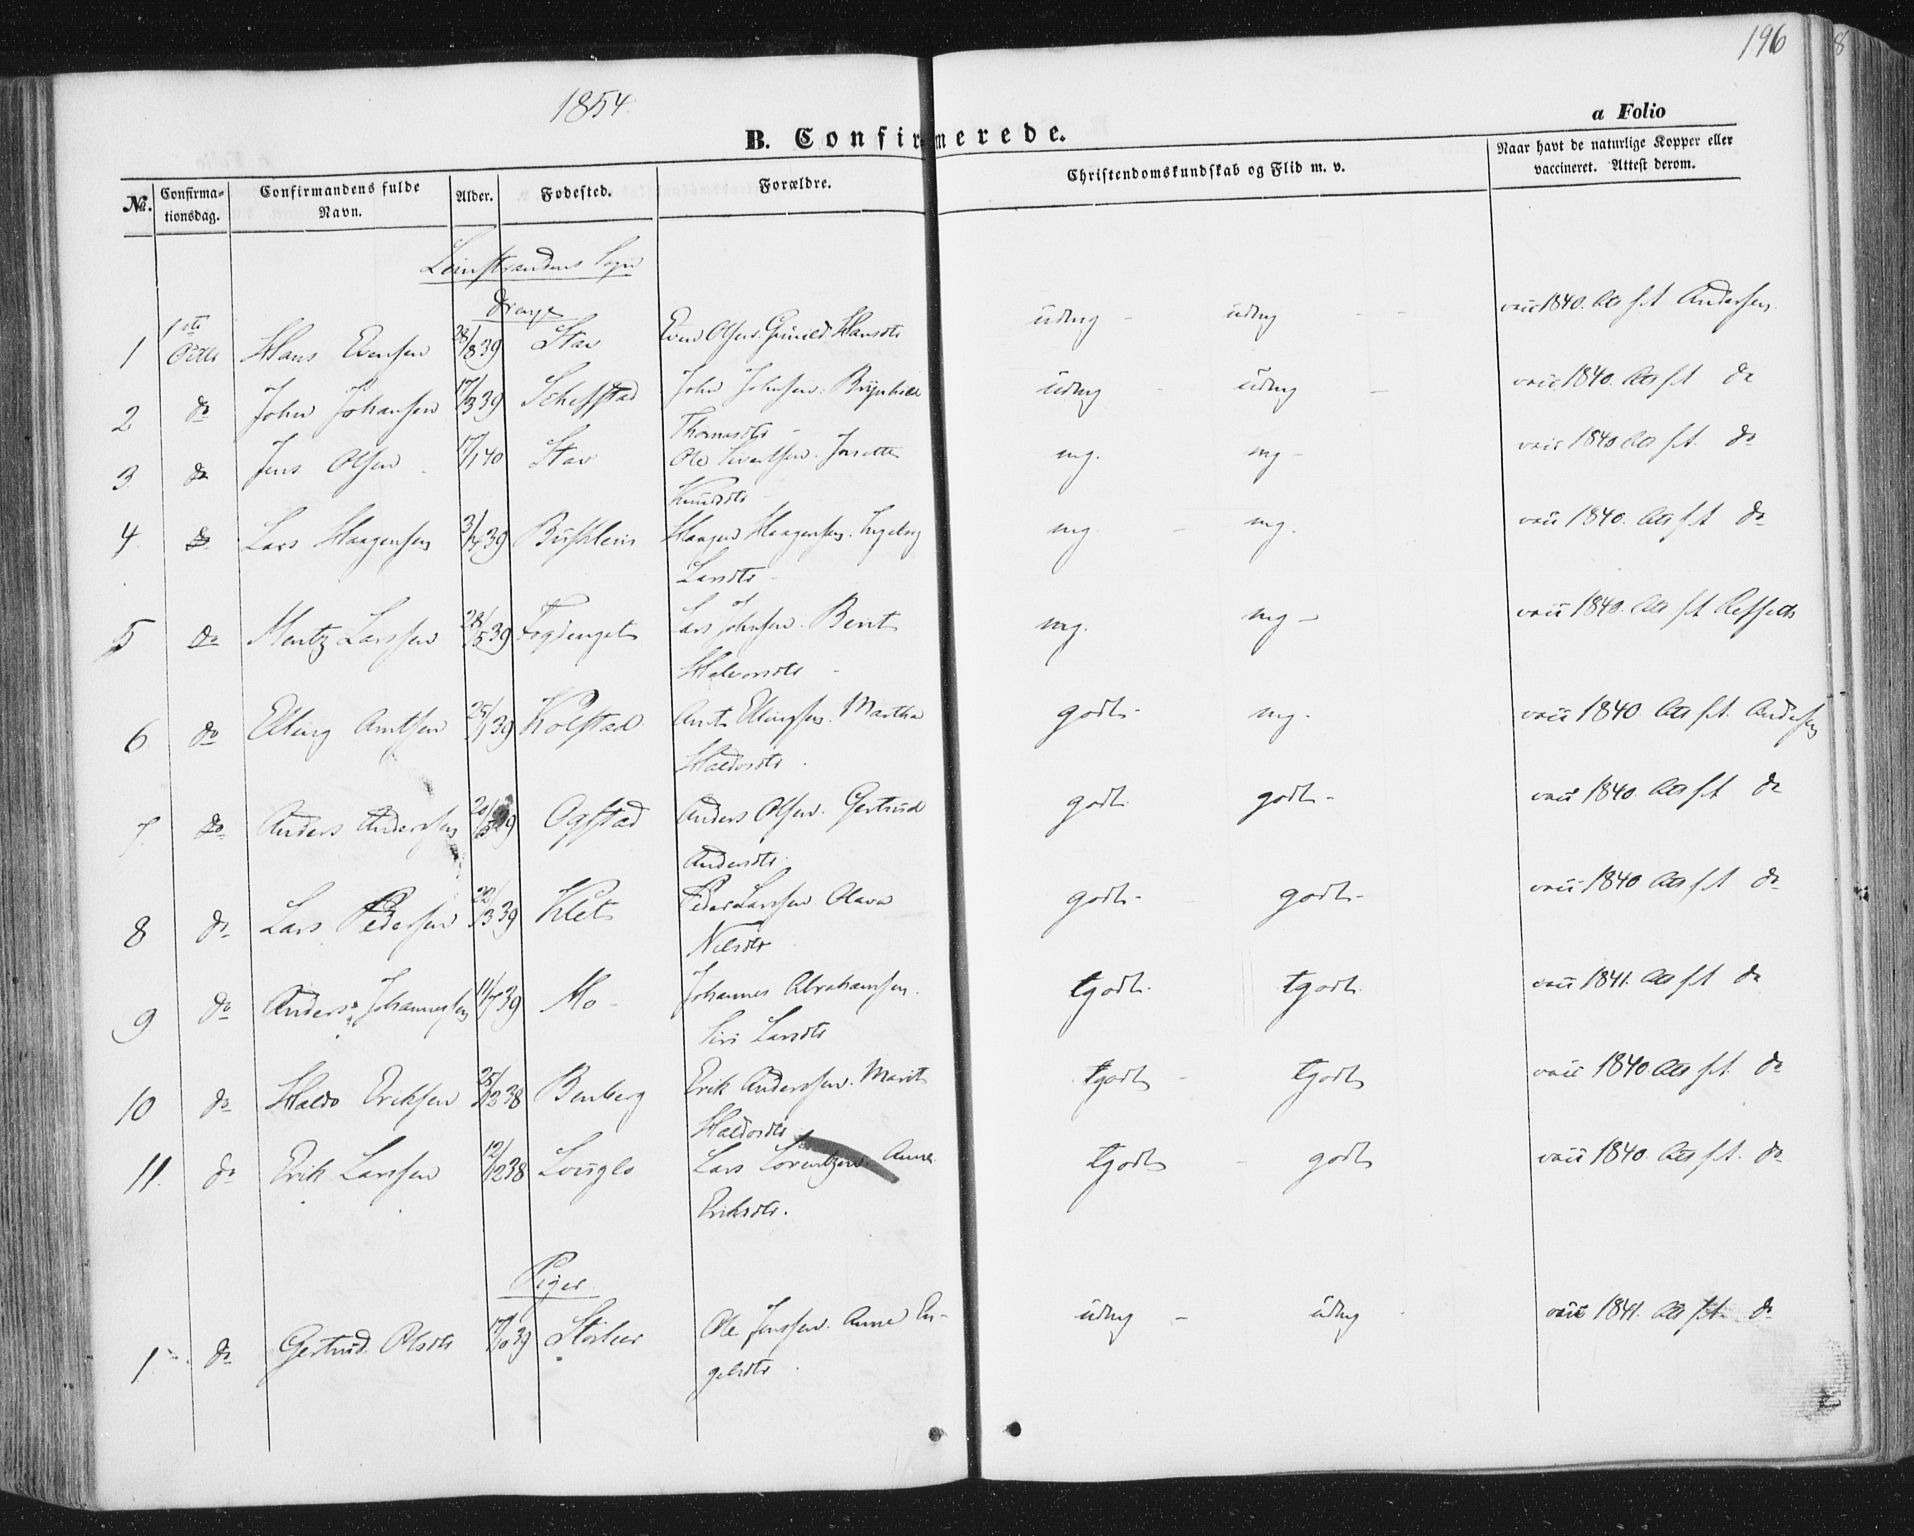 196
8
1854.
a Folio
B. Confirmerede.
No. Confirmationsdag. Confirmandens fulde Navn. Alder. Fødested. Forældre. Christendomskundskab og Flid m. v. Naar havt de naturlige Kopper eller vaccineret. Attest derom.
Leinstrandens Sogn
Drenge
1 1ste Octbr Hans Evensen 28/8 39 Stav Even Olsen. Gunild Hansdtr udmg - udmg - - vacc 1840. Att. f. A. Andersen
2 do John Johansen 17/3 39 John Johnsen. Brynhild udmg - udmg - vacc 1840. Att. f. A. do
Thomasdtr -
3 do Jens Olsen - 17/1 40 Stav Ole Sivertsen. mg. mg - vacc 1840 Att. f. A. do
Knudsdtr -
4 do Lars Haagensen 3/4 39 Haagen Haagensen. Ingeborg mg. - mg. vacc 1840. Att. f. A. do
Larsdtr -
5 do Mentz Larssen 28/5 39 Fogdenget Lars Johnsen. Berit mg. mg - vacc 1840. Att. f. A.
Halvorsdtr -
6 do Elling Arntsen 25/1 39 Kolstad Arnt Ellingsen. Martha godt - mg. vacc 1840. Att. f. A. Andersen
Haldorsdtr.
7. do Anders Anderssen 20/5 39 Ogstad Anders Olsen. Gertrud godt. godt - vacc 1840. Att. f. A. do
Andersdtr.
8 do Lars Pedersen 20/3 39 Klet Peder Larssen. Olava godt - godt - vacc 1840 Att. f. A. do
Nilsdtr
9 do Anders Johannessen 11/7 39 Mo - Johannes Abrahamsen. tgodt. tgodt. vacc 1841. Att. f. A. do
Siri Larsdtr
10 do Haldo Eriksen 25/12 38 Benberg Erik Anderssen. Marit tgodt - tgodt vacc 1840 Att. f. A. do
Haldorsdtr.
11. do Erik Larssen 12/12 38 Lars Lorentzen. Anne tgodt - godt vacc 1840. Att. f. A. do
Eriksdtr.
Piger
1 do Gertrud Olsdtr 17/10 39 Ole Jenssen. Anne En- udmg - udmg vacc 1841. Att. f. A. do
gelsdtr.